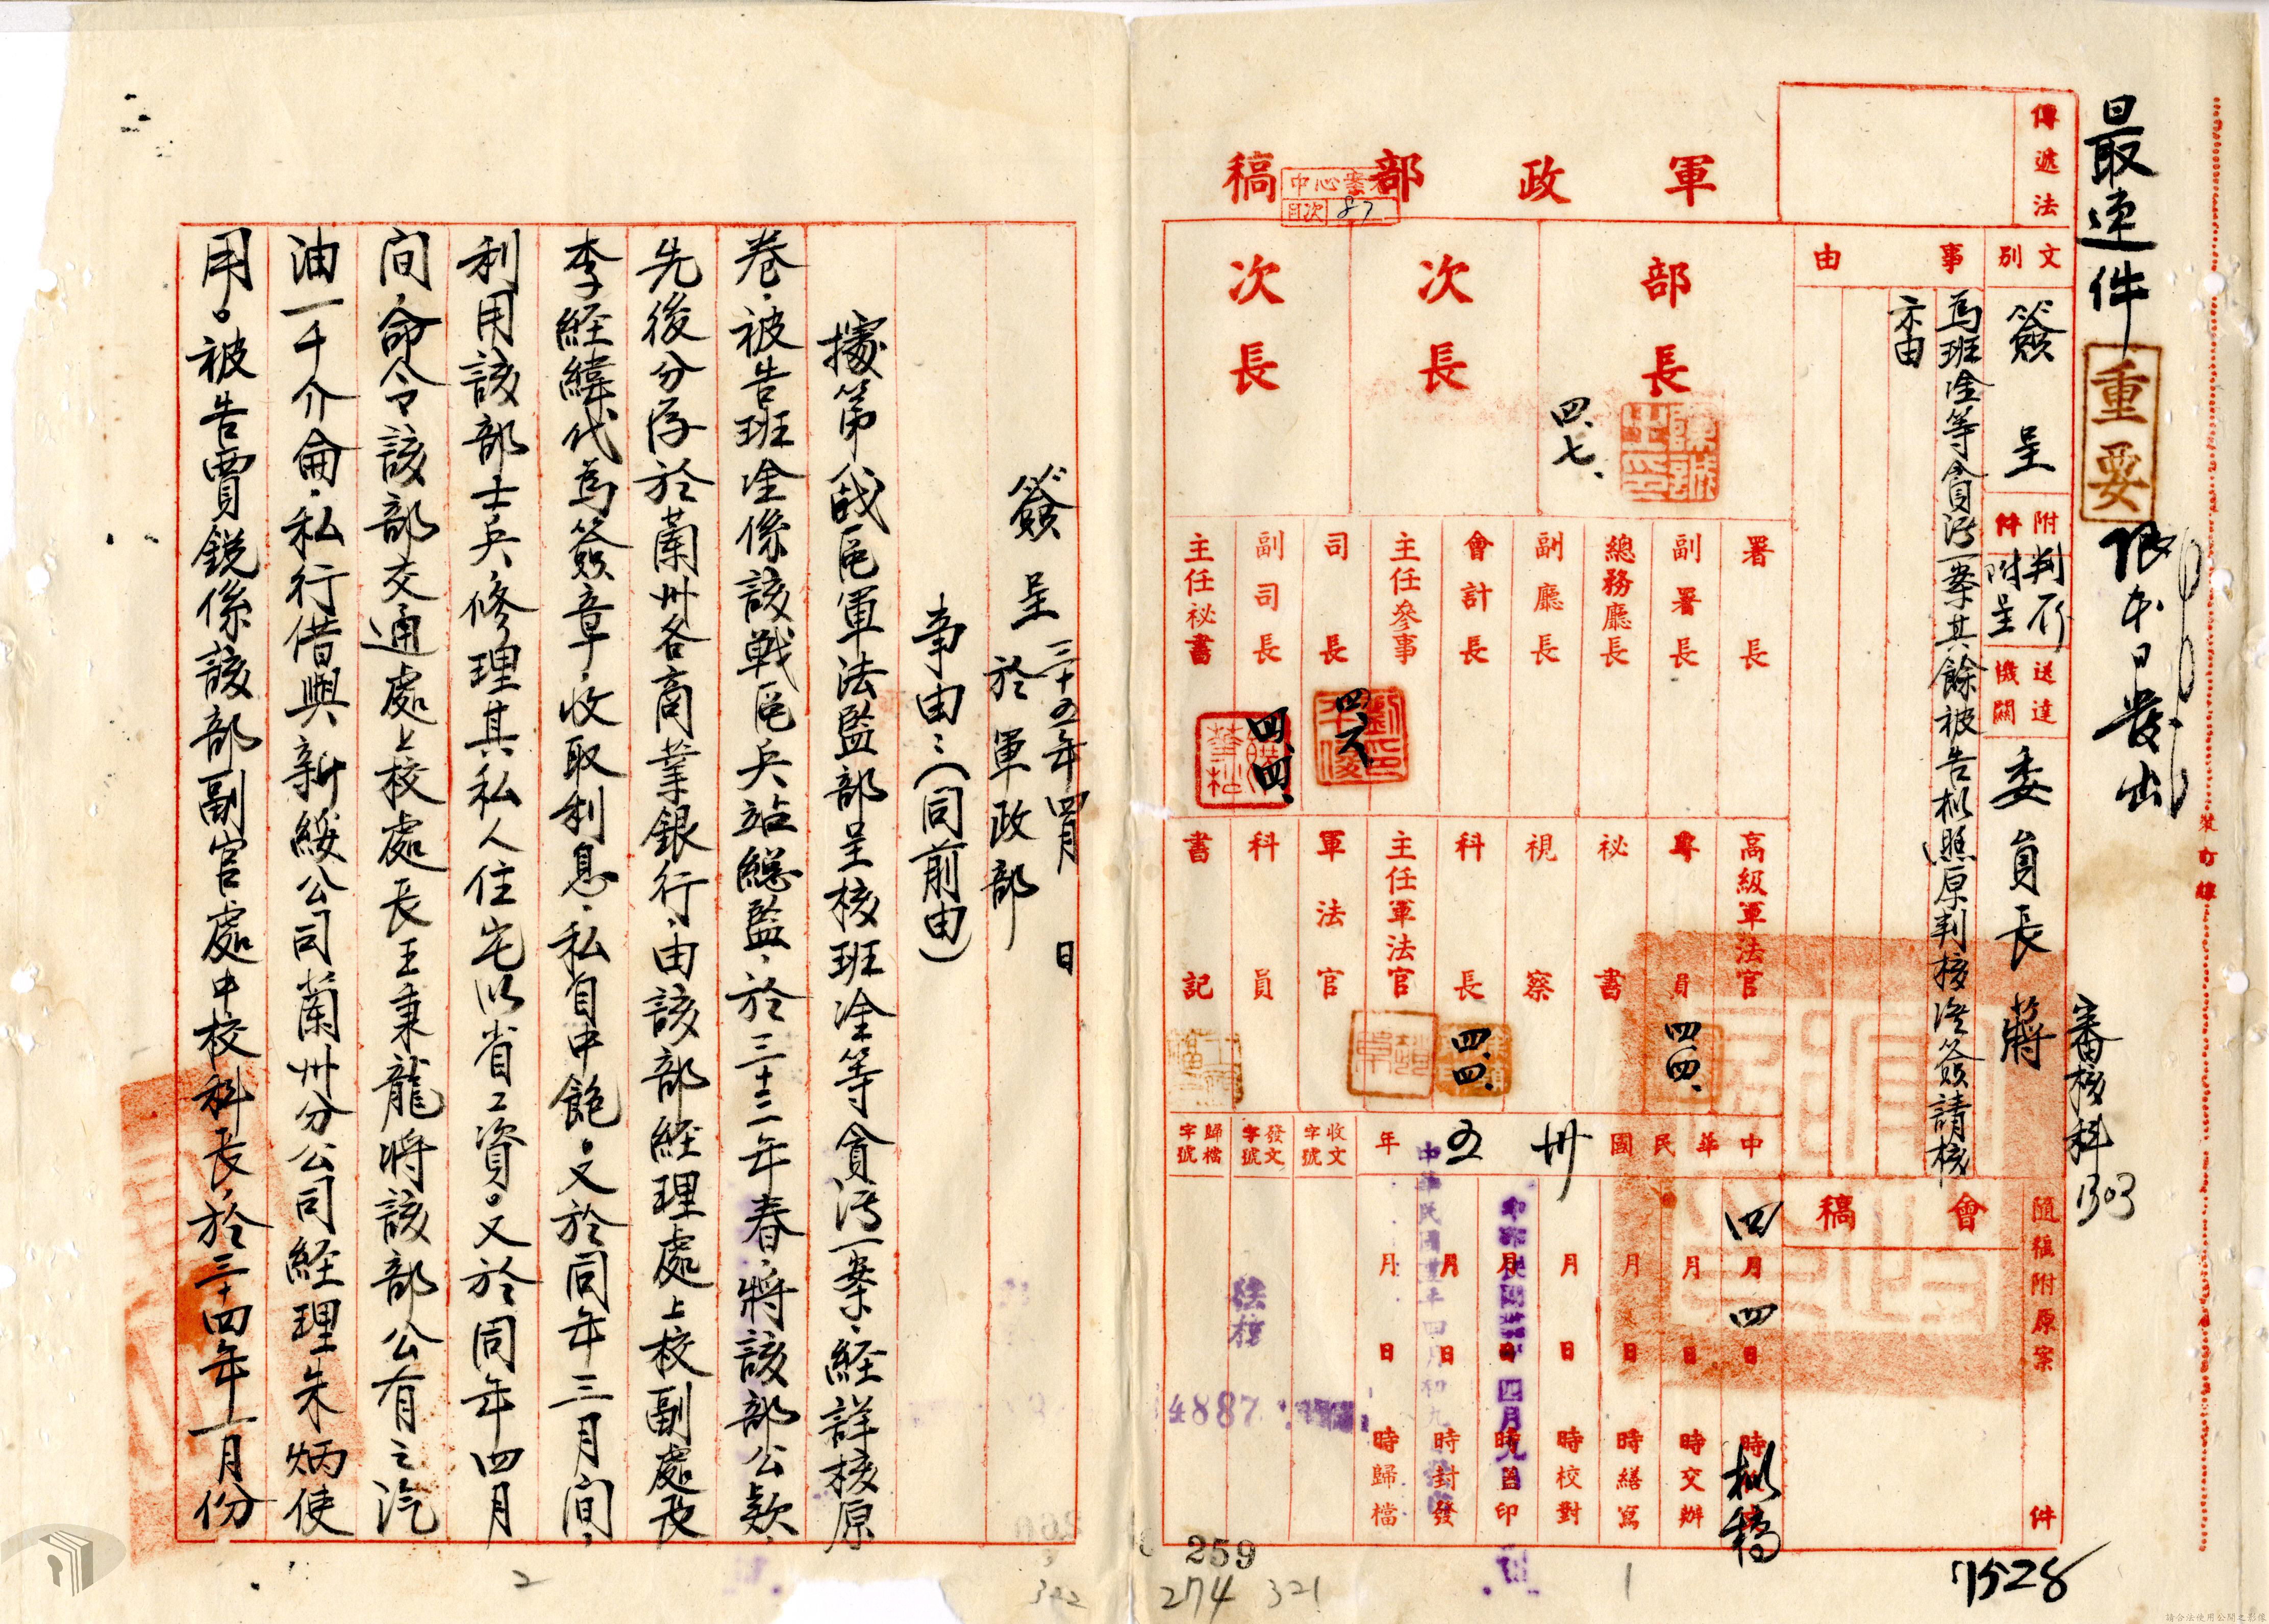 最速件
重要
限本日發出
審核科 1303
傳遞法
軍政部稿
中心案名
目次 87
文別
簽呈
附件
判不
附呈
送達機關
委員長蔣
事由
為班淦等貪污一案其餘被告擬照原判核准簽請核
示由
部長
四、七、
次長
次長
署長
副署長
總務廳長
副廳長
會計長
主任參事
司長
四、六
副司長
主任祕書
四、四、
高級軍法官
專員
四、四、
祕書
視察
科長
四、四、
主任軍法官
軍法官
科員
書記
會稿
隨稿附原案 件
中華民國 卅五 年
四月四日 時 擬稿
月 日 時交辦
月 日 時繕寫
月 日 時校對
月 日 時蓋印
月 日 時封發
月 日 時歸檔
收文字號
發文字號
法核
歸檔字號
4887
裝訂線
259
274 321
1
7528
三十五年四月 日
簽呈 於軍政部
事由：（同前由）
據第八戰區軍法監部呈核班淦等貪污一案，經詳核原
卷，被告班淦係該戰區兵站總監，於三十二年春，將該部公款，
先後分存於蘭州各商業銀行，由該部經理處上校副處長
李經緯代為簽章，收取利息，私自中飽。又於同年三月間，
利用該部士兵，修理其私人住宅以省工資。又於同年四月
間，命令該部交通處上校處長王秉龍將該部公有之汽
油一千介侖，私行借與新綏公司蘭州分公司經理朱炳使
用。被告賈銳係該部副官處中校科長，於三十四年一月份
2
322
請合法使用公開之影像